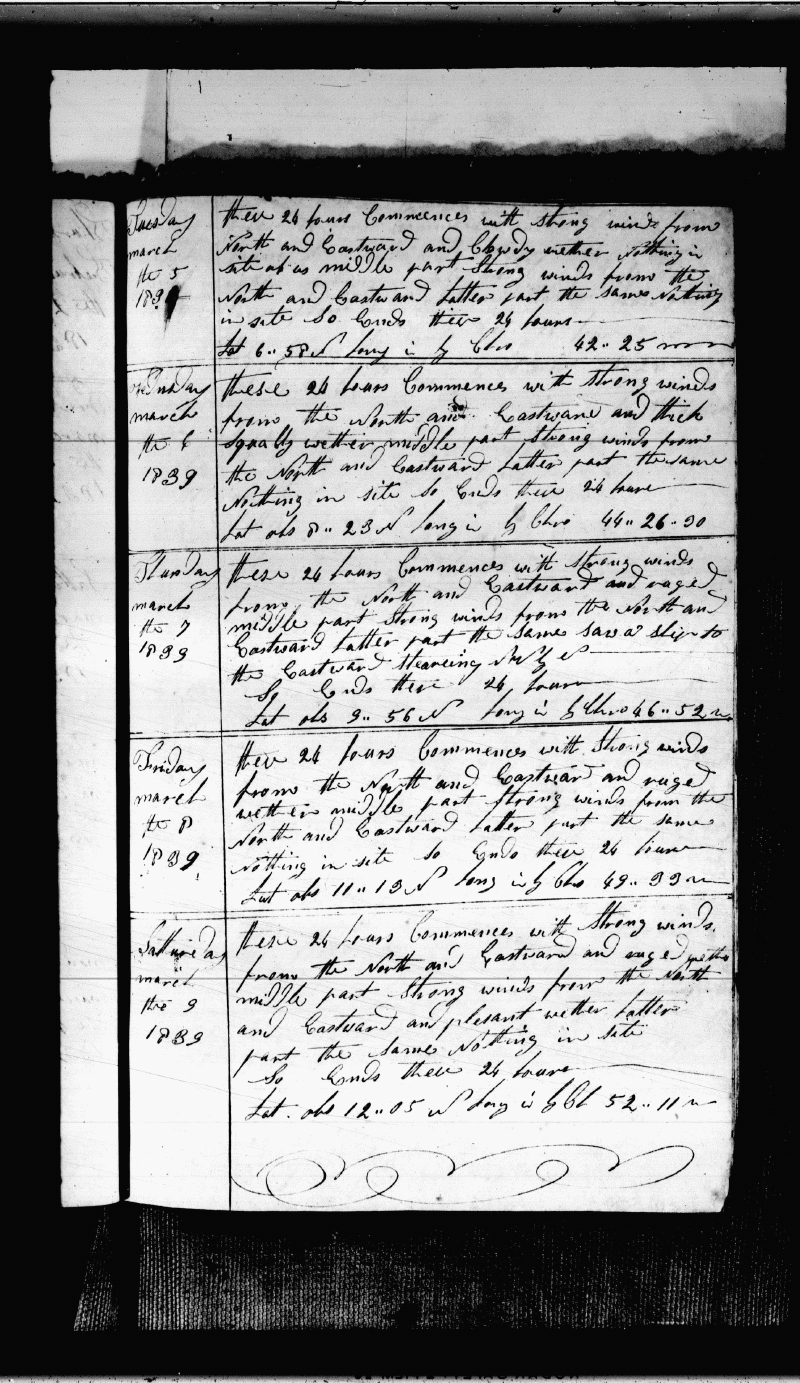 Tuesday
march
the 5
1839
these 24 hours Commences with strong winds from
North and Eastward and Clowdy wether Nothing in
site of us middle part Strong winds from the
North and Eastward Latter part the same Nothing
in site So Ends these 24 hours
Lat 6.. 58 N Long in by Chro 42.. 25
Wednsday
march
the 6
1839
these 24 hours Commences with strong winds
from the North and Eastward and thick
squally wether middle part strong winds from
the North and Eastward Latter part the same
Nothing in site So Ends these 24 hours
Lat obs 8.. 23 N Long in by Chro 44.. 26..30
Thursday
march
the 7
1839
these 24 hours Commences with strong winds
from the North and Eastward and ruged
middle part strong winds from the North and
Eastward Latter part the same saw a ship to
the Eastward stearing
So Ends these 24 hours
Lat obs 9.. 56 N Long in by Chro 46.. 52
Friday
march
the 8
1839
these 24 hours Commences with strong winds
from the North and Eastward and ruged
wether middle part strong winds from the
North and Eastward Latter part the same
Nothing in site So Ends these 24 hours
Lat obs 11.. 13 N Long in by Chro 49.. 33
march
the 9
1839
these 24 hours Commences with Strong winds
from the North and Eastward and ruged wether
middle part Strong winds from the North
and Eastward and plesant wether Latter
part the same Nothing in site
So Ends these 24 hours
Lat. obs 12.. 05 N Long in by Ch 52.. 11